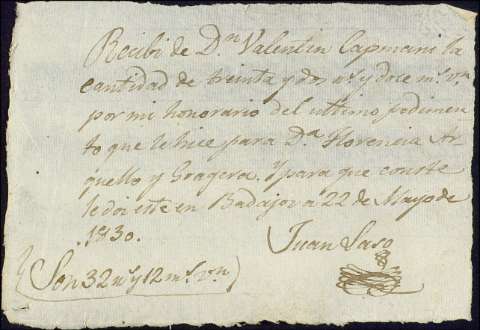 Recibi de D.n Valentin Capmani la
cantidad de treinta y dos r.s y doce m.s v.n
por mi honorario del ultimo pedimen
to que le hice para D.a Florencia Ar
guello y Gragera. Y para que conste
le doi este en Badajoz a 22 de Mayo de
1830.
Juan Saso
Son 32 r.s y 12 m.s v.n